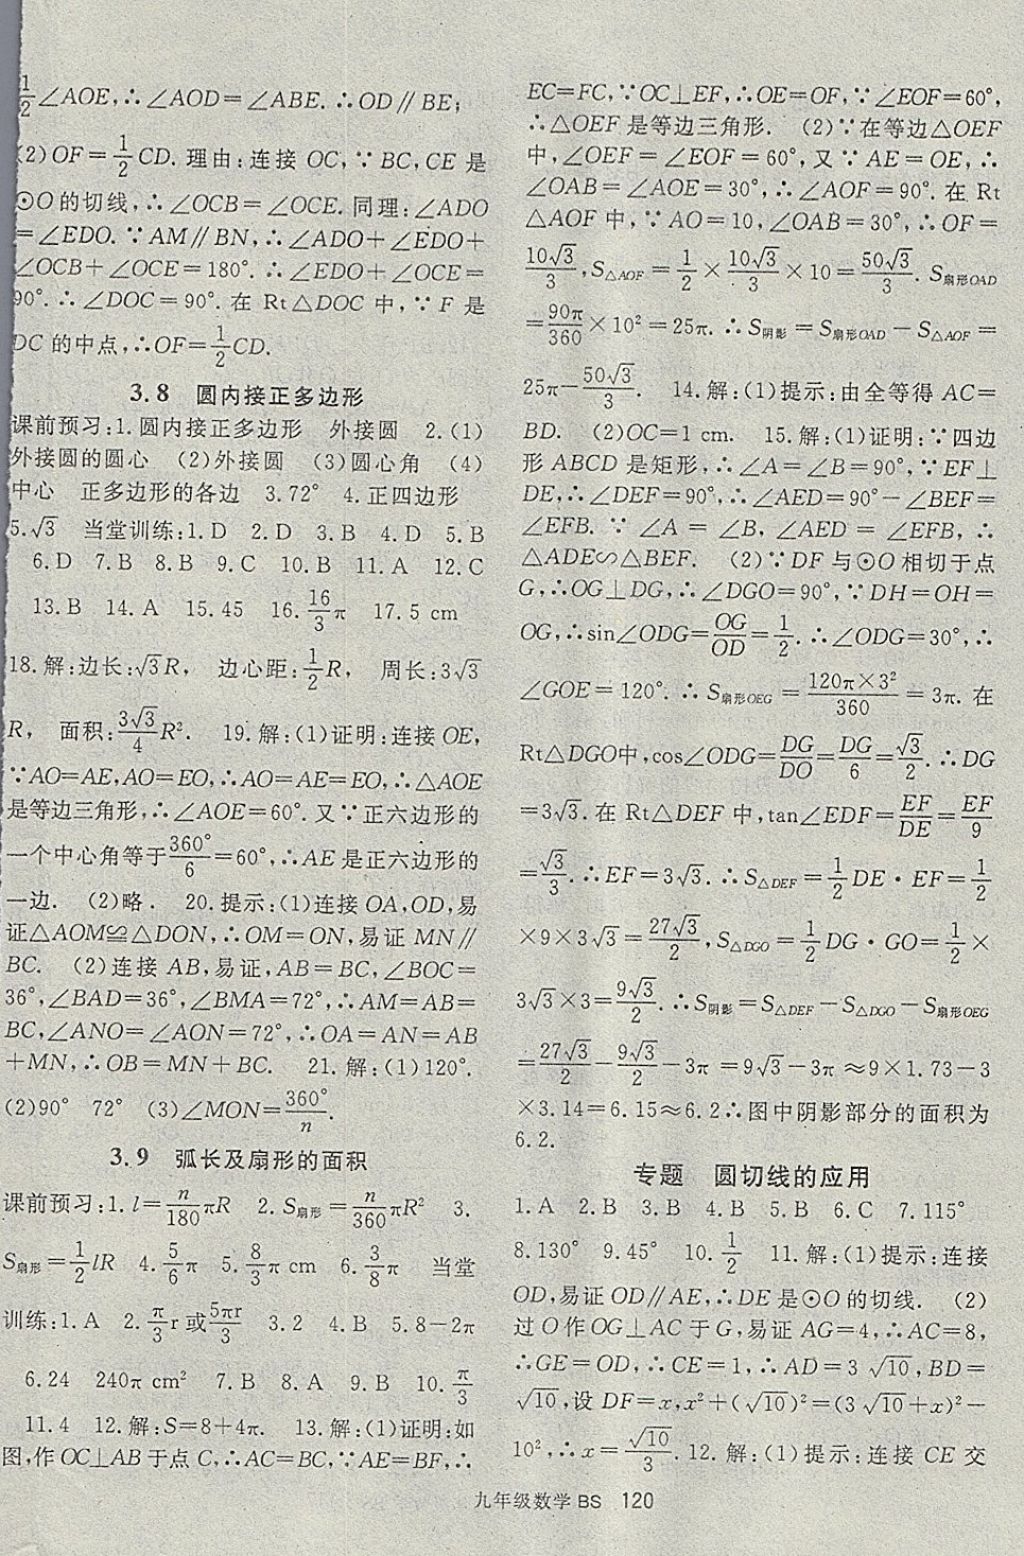 1/2∠AOE,∴∠AOD=∠ABE.∴OD∥BE;
(2)OF=1/2CD.理由:连接 OC,∵BC,CE 是
⊙O的切线,∴∠OCB=∠OCE.同理:∠ADO
=∠EDO.∵AM∥BN,∴∠ADO+∠EDO+
∠OCB+∠OCE=180°.∴∠EDO+∠OCE=
90°.∴∠DOC=90°.在 Rt△DOC 中,∵F 是
DC的中点,∴OF=1/2CD.
3.8 圆内接正多边形
课前预习:1.圆内接正多边形 外接圆 2.(1)
外接圆的圆心 (2)外接圆 (3)圆心角 (4)
中心 正多边形的各边 3.72° 4.正四边形
5.√3 当堂训练:1.D 2.D 3.B 4.D 5.B
6.D 7.B 8.B 9.C 10.B 11.A 12.C
13.B 14.A 15.45 16.16/3π 17.5 cm
18.解:边长:√3R, 边心距:1/2R, 周长:3√3
R, 面积:3√3/4R². 19.解:(1)证明:连接OE,
∵AO=AE,AO=EO,∴AO=AE=EO,∴△AOE
是等边三角形,∴∠AOE=60°.又∵正六边形的
一个中心角等于360°/6=60°,∴AE是正六边形的
一边. (2)略. 20.提示:(1)连接OA,OD,易
证△AOM≌△DON,∴OM=ON,易证MN∥
BC. (2)连接 AB,易证,AB=BC,∠BOC=
36°,∠BAD=36°,∠BMA=72°,∴AM=AB=
BC,∠ANO=∠AON=72°,∴OA=AN=AB
+MN,∴OB=MN+BC. 21.解:(1)120°.
(2)90° 72° (3)∠MON=360°/n.
3.9 弧长及扇形的面积
课前预习:1.l=n/180πR 2.S扇形=n/360πR² 3.
S扇形=1/2lR 4.5/6π 5.8/3π cm 6.3/8π 当堂
训练:1.A 2.π/3r或5πr/3 3.2 4.B 5.8-2π
6.24 240π cm² 7.B 8.A 9.B 10.π/3
11.4 12.解:S=8+4π. 13.解:(1)证明:如
图,作OC⊥AB于点C,∴AC=BC,∵AE=BF,∴
EC=FC,∵OC⊥EF,∴OE=OF,∵∠EOF=60°,
∴△OEF是等边三角形. (2)∵在等边△OEF
中,∠OEF=∠EOF=60°,又∵AE=OE,∴
∠OAB=∠AOE=30°,∴∠AOF=90°.在 Rt
△AOF中,∵AO=10,∠OAB=30°,∴OF=
10√3/3,S△AOF=1/2×10√3/3×10=50√3/3.S扇形OAD
=90π/360×10²=25π.∴S阴影=S扇形OAD-S△AOF=
25π-50√3/3. 14.解:(1)提示:由全等得AC=
BD. (2)OC=1 cm. 15.解:(1)证明:∵四边
形ABCD是矩形,∴∠A=∠B=90°,∵EF⊥
DE,∴∠DEF=90°,∴∠AED=90°-∠BEF=
∠EFB.∵∠A=∠B,∠AED=∠EFB,∴
△ADE∽△BEF. (2)∵DF与⊙O相切于点
G,∴OG⊥DG,∴∠DGO=90°,∵DH=OH=
OG,∴sin∠ODG=OG/OD=1/2.∴∠ODG=30°,∴
∠GOE=120°.∴S扇形OEG=120π×3²/360=3π.在
Rt△DGO中,cos∠ODG=DG/DO=DG/6=√3/2.∴DG
=3√3.在Rt△DEF中,tan∠EDF=EF/DE=EF/9
=√3/3.∴EF=3√3.∴S△DEF=1/2DE·EF=1/2
×9×3√3=27√3/2,S△DGO=1/2DG·GO=1/2×
3√3×3=9√3/2.∴S阴影=S△DEF-S△DGO-S扇形OEG
=27√3/2-9√3/2-3π=9√3-3π≈9×1.73-3
×3.14=6.15≈6.2∴图中阴影部分的面积为
6.2.
专题 圆切线的应用
1.A 2.B 3.B 4.B 5.B 6.C 7.115°
8.130° 9.45° 10.1/2 11.解:(1)提示:连接
OD,易证OD∥AE,∴DE是⊙O的切线. (2)
过O作OG⊥AC于G,易证AG=4,∴AC=8,
∴GE=OD,∴CE=1,∴AD=3√10,BD=
√10,设DF=x,x²+(√10)²=(3√10+x)²-
10²,∴x=√10/3.12.解:(1)提示:连接CE交
九年级数学 BS 120